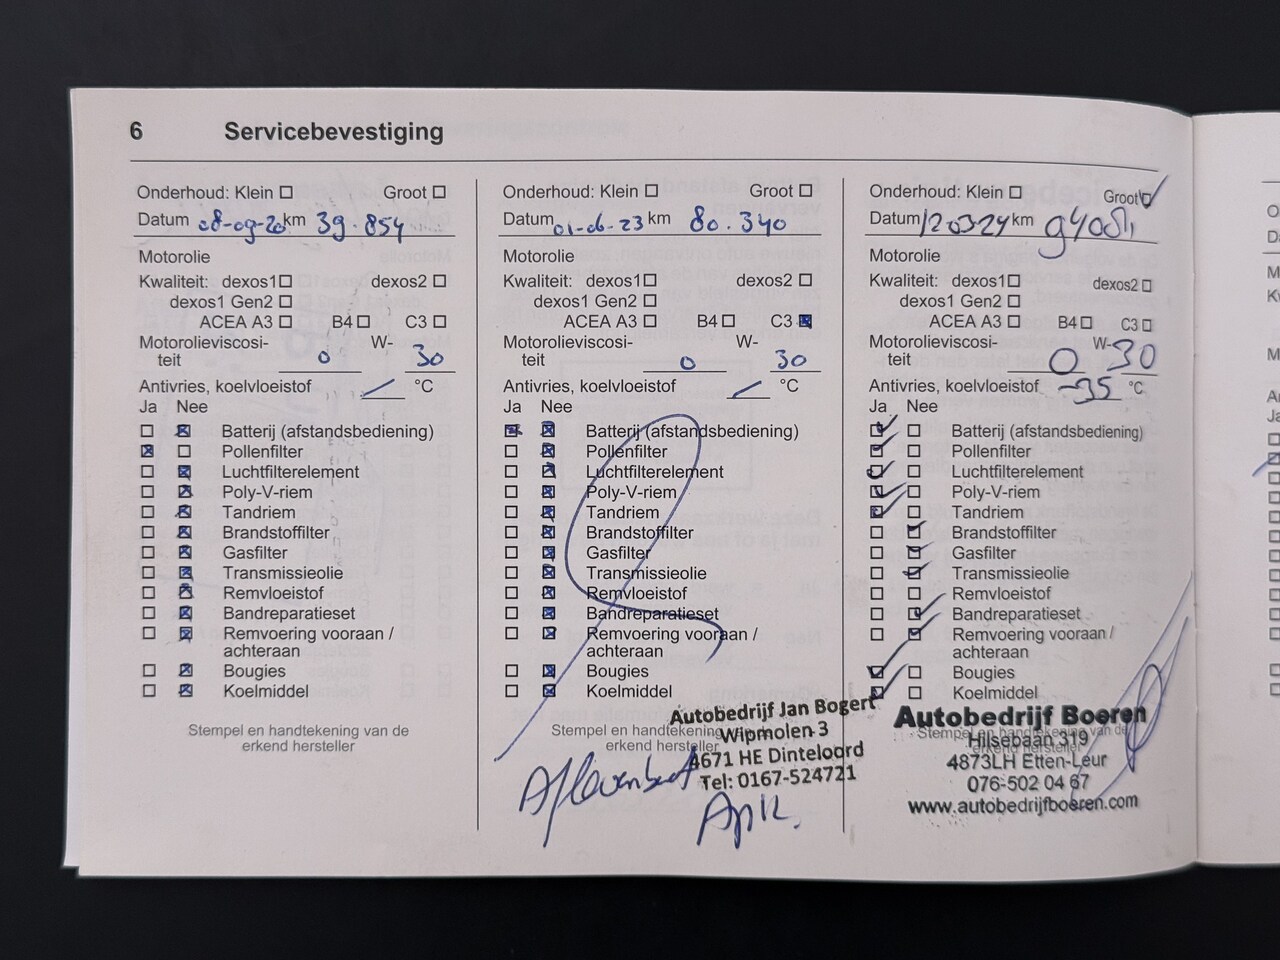 6 Servicebevestiging
Onderhoud: Klein Groot
Datum 08-09-20 km 39.854
Motorolie
Kwaliteit: dexos1 dexos2
dexos1 Gen2
ACEA A3 B4 C3
Motorolieviscosi-
teit 0 W- 30
Antivries, koelvloeistof °C
Ja Nee
Batterij (afstandsbediening)
Pollenfilter
Luchtfilterelement
Poly-V-riem
Tandriem
Brandstoffilter
Gasfilter
Transmissieolie
Remvloeistof
Bandreparatieset
Remvoering vooraan /
achteraan
Bougies
Koelmiddel
Stempel en handtekening van de
erkend hersteller
Onderhoud: Klein Groot
Datum 01-06-23 km 80.340
Motorolie
Kwaliteit: dexos1 dexos2
dexos1 Gen2
ACEA A3 B4 C3
Motorolieviscosi-
teit 0 W- 30
Antivries, koelvloeistof °C
Ja Nee
Batterij (afstandsbediening)
Pollenfilter
Luchtfilterelement
Poly-V-riem
Tandriem
Brandstoffilter
Gasfilter
Transmissieolie
Remvloeistof
Bandreparatieset
Remvoering vooraan /
achteraan
Bougies
Koelmiddel
Stempel en handtekening van de
erkend hersteller
Autobedrijf Jan Bogert
Wipmolen 3
4671 HE Dinteloord
Tel: 0167-524721
Afleverbeurt
Apk.
Onderhoud: Klein Groot
Datum 120324 km
Motorolie
Kwaliteit: dexos1 dexos2
dexos1 Gen2
ACEA A3 B4 C3
Motorolieviscosi-
teit 0 W- 30
Antivries, koelvloeistof -35 °C
Ja Nee
Batterij (afstandsbediening)
Pollenfilter
Luchtfilterelement
Poly-V-riem
Tandriem
Brandstoffilter
Gasfilter
Transmissieolie
Remvloeistof
Bandreparatieset
Remvoering vooraan /
achteraan
Bougies
Koelmiddel
Stempel en handtekening van de
erkend hersteller
Autobedrijf Boeren
Hilsebaan 319
4873LH Etten-Leur
076-502 04 67
www.autobedrijfboeren.com